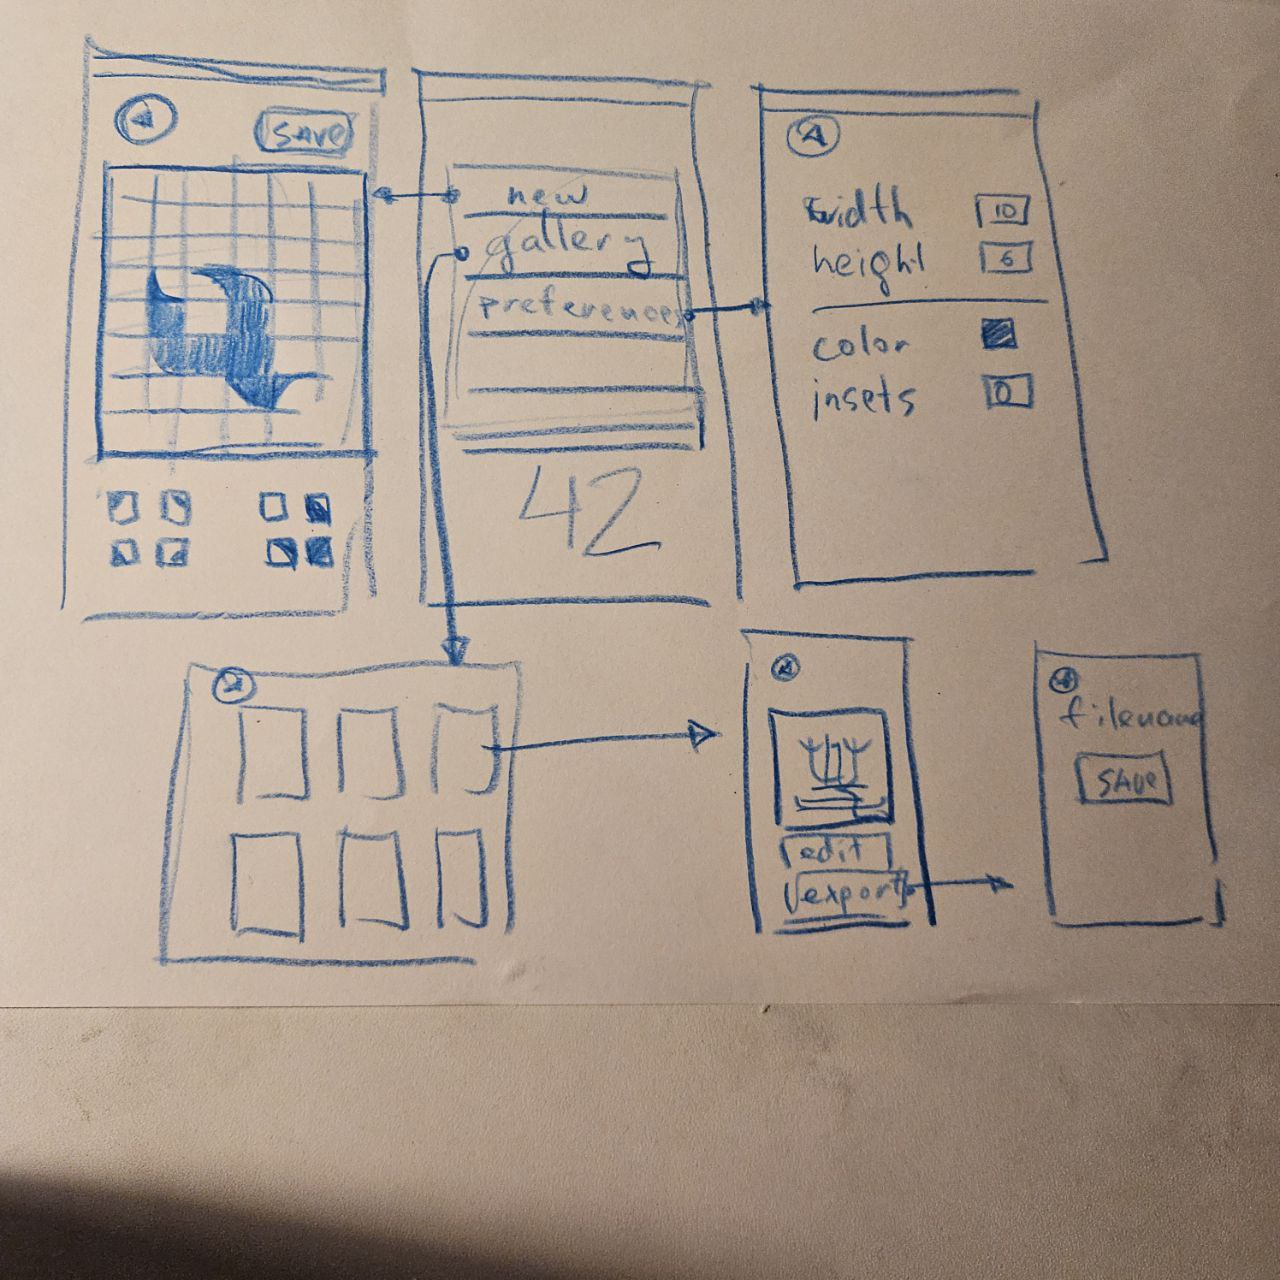 SAVE
new
gallery
preferences
42
width 10
height 6
color
insets 0
edit
export
filename
SAVE